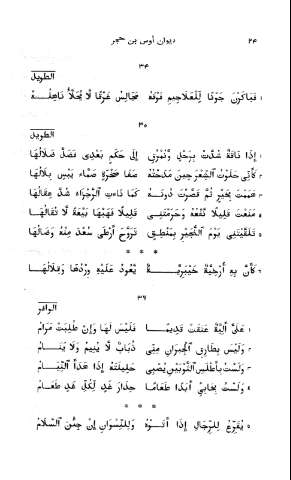 ٢٤ ديوان أوس بن حجر
٣٤
الطويل
١ فَبَاكَرْنَ جَوْنًا لِلْعَلَاجِيمِ فَوْقَهُ مَجَالِسُ غَرْقَا لَا يُحَلَّأُ نَاهِلُهْ
٣٥
الطويل
١ إِذَا نَاقَةٌ شُدَّتْ بِرَحْلٍ وَنُمْرُقٍ إِلَى حَكَمٍ بَعْدِي فَضَلَّ ضَلَالُهَا
٢ كَأَنِّي حَلَوْتُ الشِّعْرَ حِينَ مَدَحْتُهُ صَفَا صَخْرَةٍ صَمَّاءَ يَبْسٍ بِلَالُهَا
٣ هَمَمْتَ بِخَيْرٍ ثُمَّ قَصَّرْتَ دُونَهُ كَمَا نَاءَتِ الرَّجْزَاءُ شُدَّ عِقَالُهَا
٤ مَنَعْتَ قَلِيلًا نَفْعُهُ وَحَرَمْتَنِي قَلِيلًا فَهَبْهَا بَيْعَةً لَا تُقَالُهَا
٥ تَلَقَّيْتَنِي يَوْمَ النُّجَيْرِ بِمَنْطِقٍ تَرَوَّحَ أَرْطَى سُعْدَ مِنْهُ وَضَالُهَا
* * *
٦ كَأَنَّ بِهِ إِذْ جِئْتَهُ خَيْبَرِيَّةً يَعُودُ عَلَيْهِ وِرْدُهَا وَمُلَالُهَا
٣٦
الوافر
١ عَلَيَّ أَلِيَّةٌ عَتَقَتْ قَدِيمًا فَلَيْسَ لَهَا وَإِنْ طُلِبَتْ مَرَامُ
٢ وَلَيْسَ بِطَارِقِ الْجِيرَانِ مِنِّي ذُبَابٌ لَا يُنِيمُ وَلَا يَنَامُ
٣ وَلَسْتُ بِأَطْلَسِ الثَّوْبَيْنِ يُصْبِي حَلِيلَتَهُ إِذَا هَدَأَ النِّيَامُ
٤ وَلَسْتُ بِخَابِئٍ أَبَدًا طَعَامًا حِذَارَ غَدٍ لِكُلِّ غَدٍ طَعَامُ
* * *
٥ لِلرِّجَالِ إِذَا أَتَوْهُ وَلِلنِّسْوَانِ إِنْ جِئْنَ السَّلَامُ